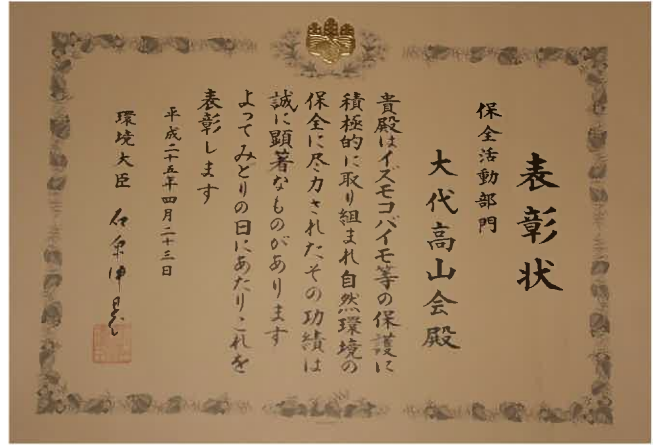 表彰状
保全活動部門
大代高山会殿
貴殿はイズモコバイモ等の保護に
積極的に取り組まれ自然環境の
保全に尽力されたその功績は
誠に顕著なものがあります
よってみどりの日にあたりこれを
表彰します
平成二十五年四月二十三日
環境大臣 石原伸晃